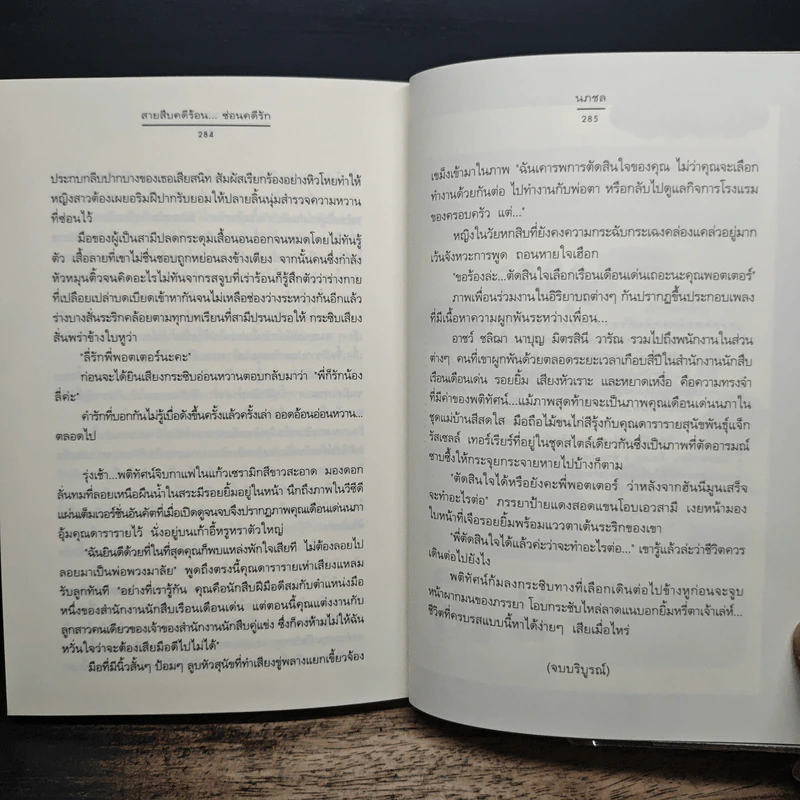 สายสืบคดีร้อน... ซ่อนคดีรัก
284
ประกบกลีบปากบางของเธอเสียสนิท สัมผัสเรียกร้องอย่างหิวโหยทำให้
หญิงสาวต้องเผยอริมฝีปากรับยอมให้ปลายลิ้นนุ่มสำรวจความหวาน
ที่ซ่อนไว้
มือของผู้เป็นสามีปลดกระดุมเสื้อนอนออกจนหมดโดยไม่ทันรู้
ตัว เสื้อลายที่เขาไม่ชื่นชอบถูกหย่อนลงข้างเตียง จากนั้นคนซึ่งกำลัง
หัวหมุนติ้วจนคิดอะไรไม่ทันจากรสจูบที่เร่าร้อนก็รู้สึกตัวว่าร่างกาย
ที่เปลือยเปล่าบดเบียดเข้าหากันจนไม่เหลือช่องว่างระหว่างกันอีกแล้ว
ร่างบางสั่นระริกคล้อยตามทุกบทเรียนที่สามีปรนเปรอให้ กระซิบเสียง
สั่นพร่าข้างใบหูว่า
"ลี่รักพี่พอตเตอร์นะคะ"
ก่อนจะได้ยินเสียงกระซิบอ่อนหวานตอบกลับมาว่า "พี่ก็รักน้อง
ลี่ค่ะ"
คำรักที่บอกกันไม่รู้เบื่อดังขึ้นครั้งแล้วครั้งเล่า ออดอ้อนอ่อนหวาน...
ตลอดไป
รุ่งเช้า...พติทัศน์จิบกาแฟในแก้วเซรามิกสีขาวสะอาด มองดอก
ลั่นทมที่ลอยเหนือผืนน้ำในสระมีรอยยิ้มอยู่ในหน้า นึกถึงภาพในวีซีดี
แผ่นเต็มเวอร์ชั่นอันคัตที่เมื่อเปิดดูจนจบจึงปรากฏภาพคุณเดือนเด่นนภา
อุ้มคุณดารารายไว้ นั่งอยู่บนเก้าอี้หรูหราตัวใหญ่
"ฉันยินดีด้วยที่ในที่สุดคุณก็พบแหล่งพักใจเสียที ไม่ต้องลอยไป
ลอยมาเป็นพ่อพวงมาลัย" พูดถึงตรงนี้คุณดารารายเห่าเสียงแหลม
รับลูกทันที "อย่างที่เรารู้กัน คุณคือนักสืบฝีมือดีสมกับตำแหน่งมือ
หนึ่งของสำนักงานนักสืบเรือนเดือนเด่น แต่ตอนนี้คุณแต่งงานกับ
ลูกสาวคนเดียวของเจ้าของสำนักงานนักสืบคู่แข่ง ซึ่งก็คงห้ามไม่ให้ฉัน
หวั่นใจว่าจะต้องเสียมือดีไปไม่ได้"
มือที่มีนิ้วสั้นๆ ป้อมๆ ลูบหัวสุนัขที่ทำเสียงขู่พลางแยกเขี้ยวจ้อง
นภชล
285
เขม็งเข้ามาในภาพ "ฉันเคารพการตัดสินใจของคุณ ไม่ว่าคุณจะเลือก
ทำงานด้วยกันต่อ ไปทำงานกับพ่อตา หรือกลับไปดูแลกิจการโรงแรม
ของครอบครัว แต่..."
หญิงในวัยหกสิบที่ยังคงความกระฉับกระเฉงคล่องแคล่วอยู่มาก
เว้นจังหวะการพูด ถอนหายใจเฮือก
"ขอร้องล่ะ...ตัดสินใจเลือกเรือนเดือนเด่นเถอะนะคุณพอตเตอร์"
ภาพเพื่อนร่วมงานในอิริยาบถต่างๆ กันปรากฏขึ้นประกอบเพลง
ที่มีเนื้อหาความผูกพันระหว่างเพื่อน...
อาชว์ ชลิฌา นาบุญ มิตรสินี วาริณ รวมไปถึงพนักงานในส่วน
ต่างๆ คนที่เขาผูกพันด้วยตลอดระยะเวลาเกือบสี่ปีในสำนักงานนักสืบ
เรือนเดือนเด่น รอยยิ้ม เสียงหัวเราะ และหยาดเหงื่อ คือความทรงจำ
ที่มีค่าของพติทัศน์...แม้ภาพสุดท้ายจะเป็นภาพคุณเดือนเด่นนภาใน
ชุดแม่บ้านสีสดใส มือถือไม้ขนไก่สีรุ้งกับคุณดารารายสุนัขพันธุ์แจ็ก
รัสเซลล์ เทอร์เรียร์ที่อยู่ในชุดสไตล์เดียวกันซึ่งเป็นภาพที่ตัดอารมณ์
ซาบซึ้งให้กระจุยกระจายหายไปบ้างก็ตาม
"ตัดสินใจได้หรือยังคะพี่พอตเตอร์ ว่าหลังจากฮันนีมูนเสร็จ
จะทำอะไรต่อ" ภรรยาป้ายแดงสอดแขนโอบเอวสามี เงยหน้ามอง
ใบหน้าที่เจือรอยยิ้มพร้อมแววตาเต้นระริกของเขา
"พี่ตัดสินใจได้แล้วค่ะว่าจะทำอะไรต่อ..." เขารู้แล้วล่ะว่าชีวิตควร
เดินต่อไปยังไง
พติทัศน์ก้มลงกระซิบทางที่เลือกเดินต่อไปข้างหูก่อนจะจูบ
หน้าผากมนของภรรยา โอบกระชับไหล่ลาดแนบอกยิ้มหรี่ตาเจ้าเล่ห์...
ชีวิตที่ครบรสแบบนี้หาได้ง่ายๆ เสียเมื่อไหร่
(จบบริบูรณ์)